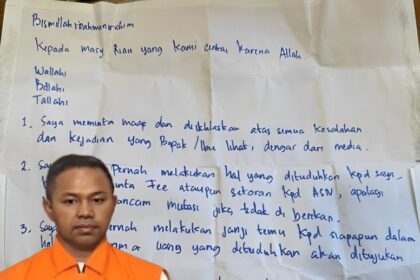 Bismillahirrahmanirrahim
Kepada masy Riau yang kami cintai karena Allah
Wallahi
Billahi
Tallahi
1. Saya meminta maaf dan diikhlaskan atas semua kesalahan
dan kejadian yang Bapak/Ibu lihat, dengar dari media.
2. Say pernah melakukan hal yang dituduhkan kpd saya
nta Fee ataupun setoran kpd ASN, apalagi
ancam mutasi jika tidak di berikan.
3. Saya pernah melakukan janji temu kpd siapapun dalam
uang yang dituduhkan akan ditujukan